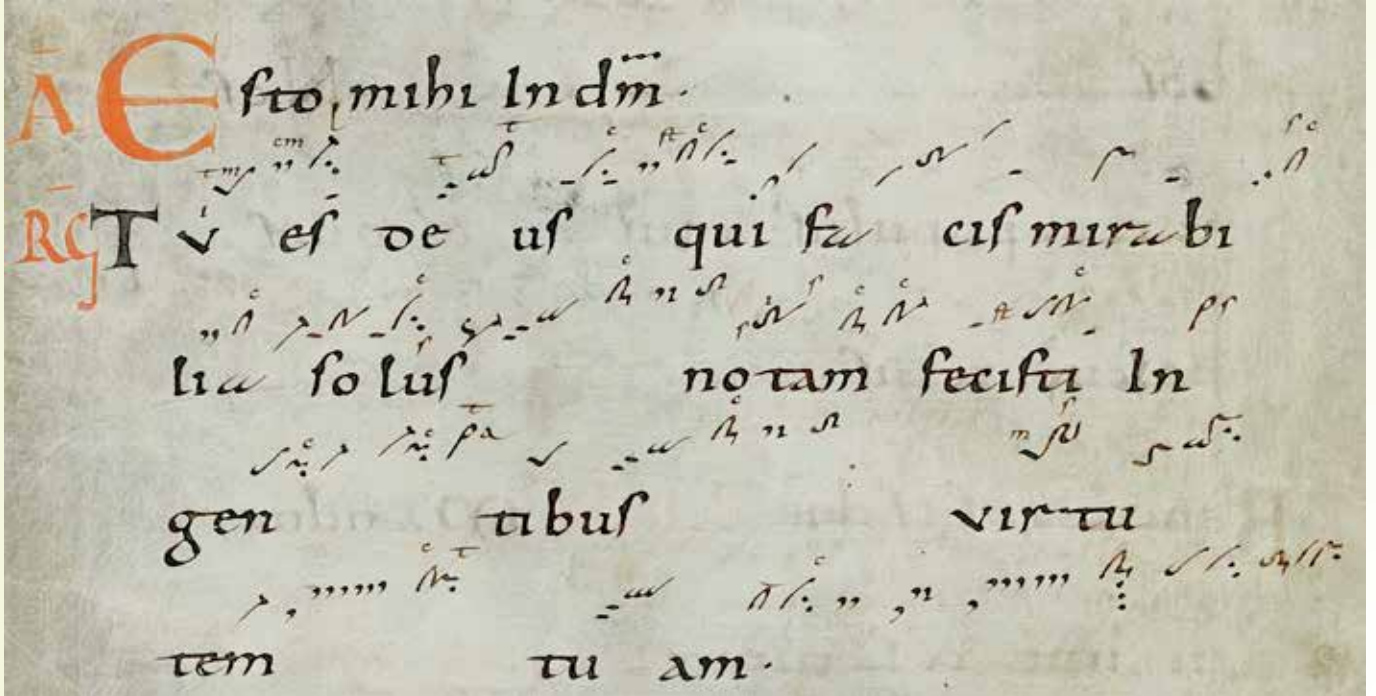 A Esto mihi In dm̅.
RG Tu es deus qui facis mirabi
lia solus notam fecisti In
gen tibus virtu
tem tu am.